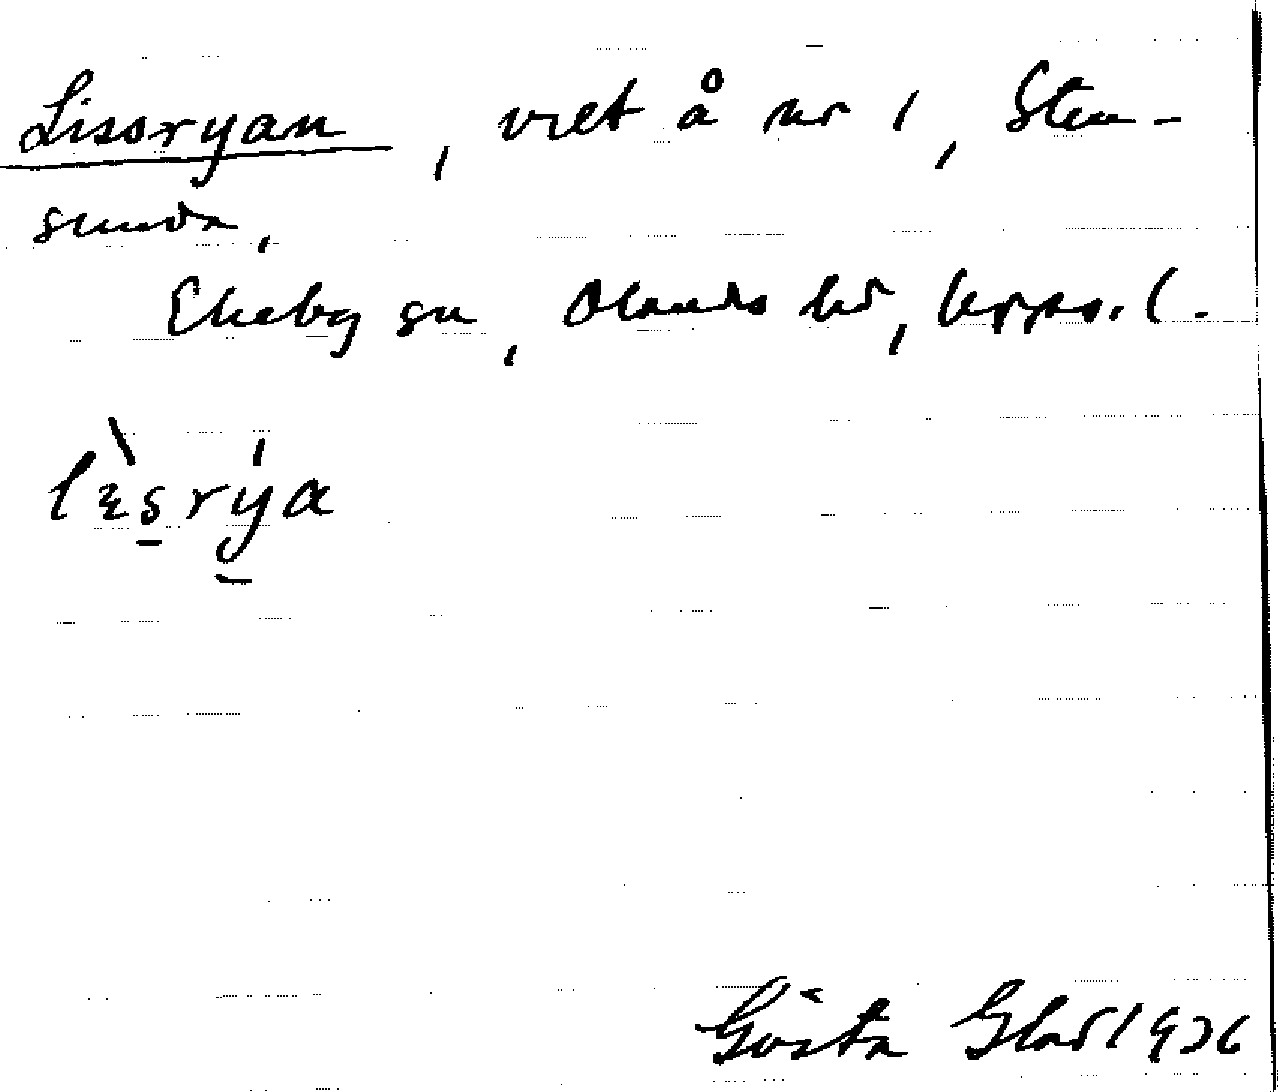 Lissryan, vret å nr 1, Sten-
sunda,
Ekeby sn, Olands hd, Upps. l.
lèsrýa
Gösta Glad 1926